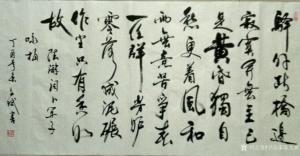 驿外断桥邊
寂寞開無主已
是黄昏獨自
愁更着風和
雨無意苦争春
一任群芳妒
零落成泥碾
作尘只有香如
故 陸游词卜算子
咏梅
丁酉年春